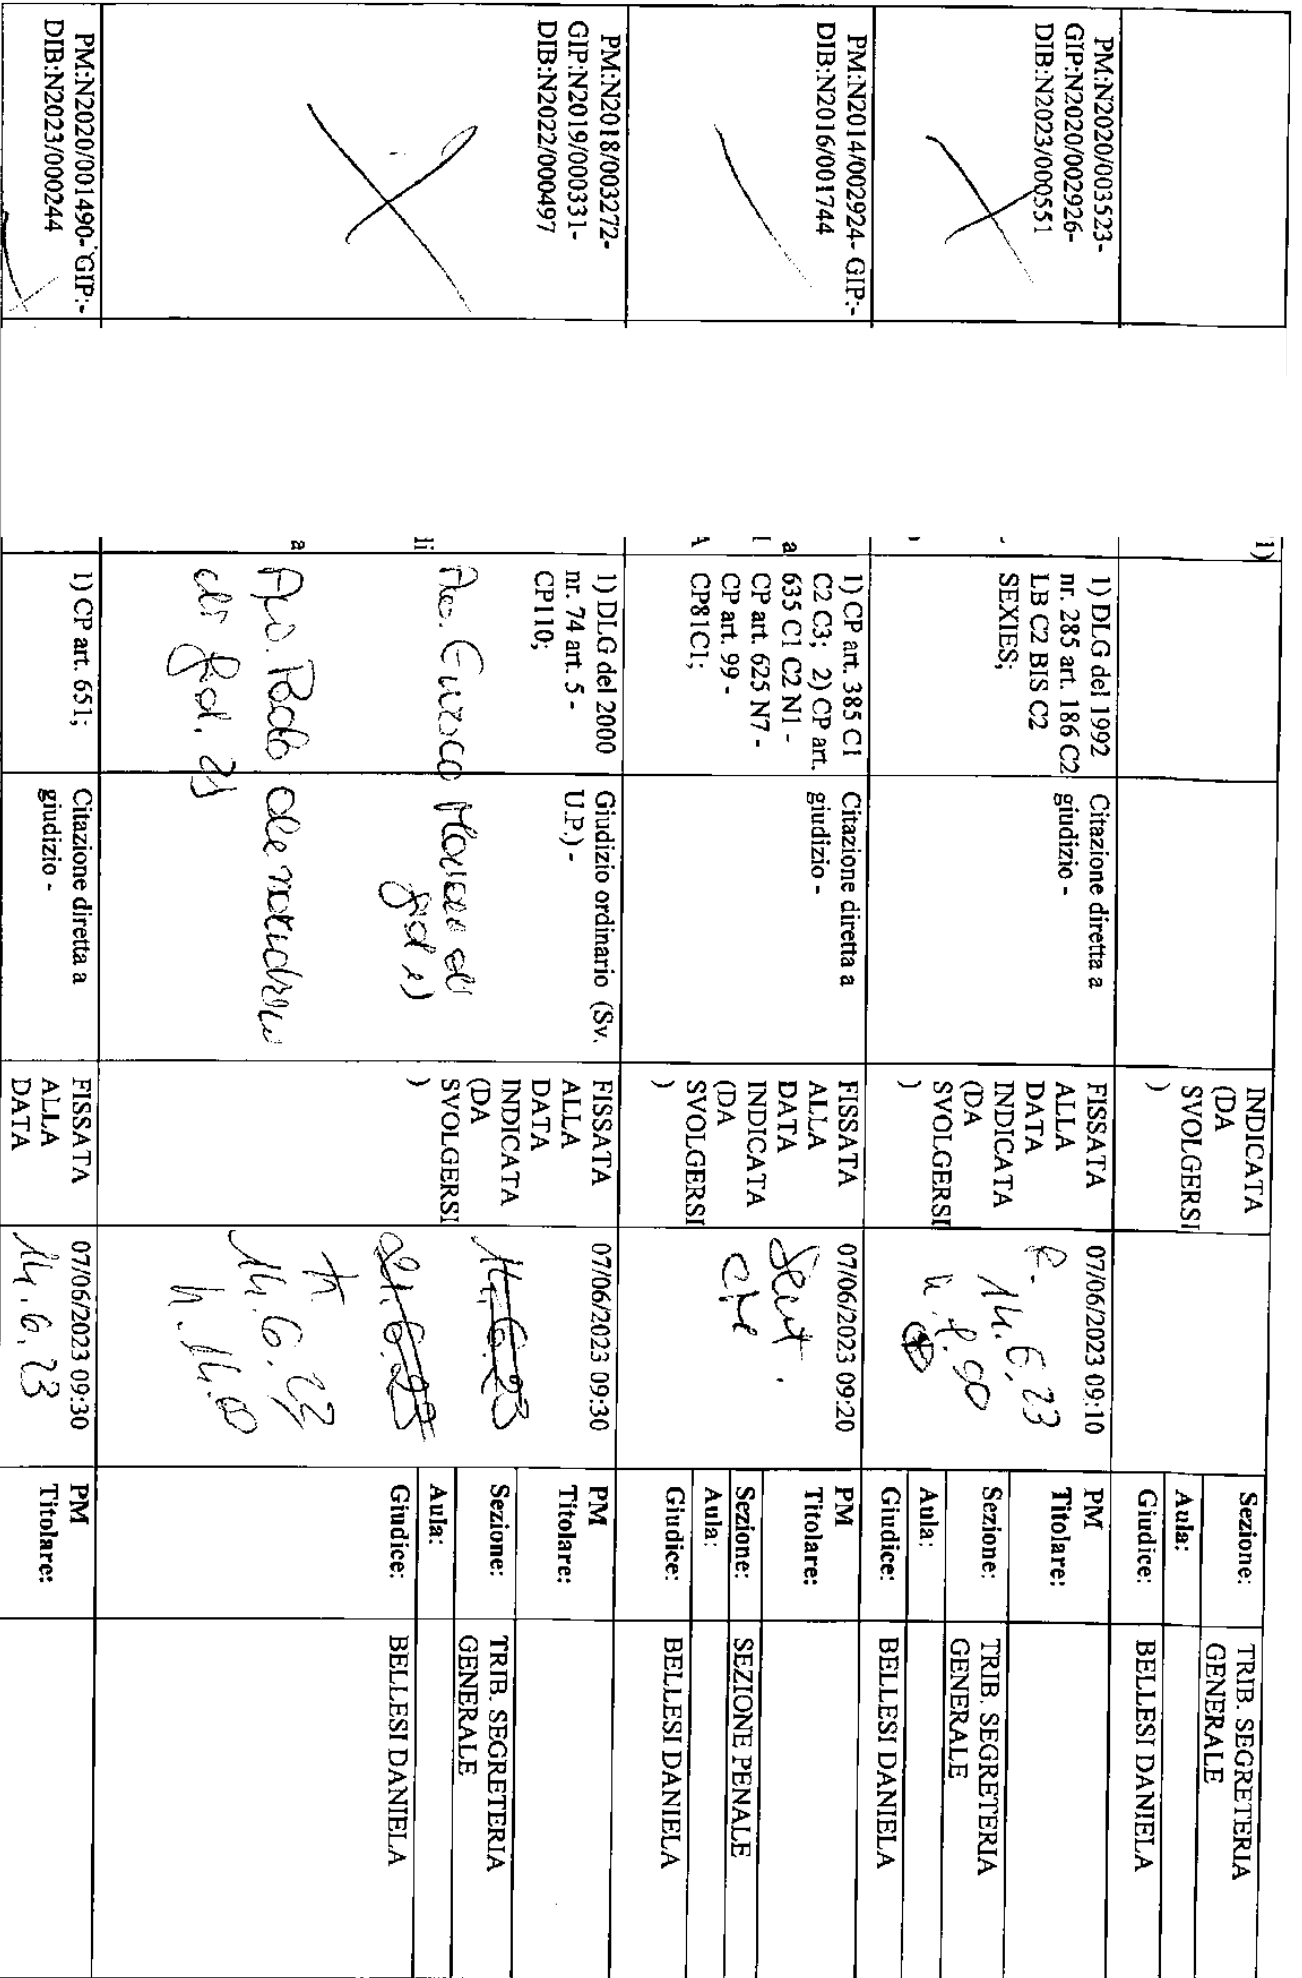 1)
INDICATA
(DA
SVOLGERSI
)
Sezione:
TRIB. SEGRETERIA
GENERALE
Aula:
Giudice:
BELLESI DANIELA
PM:N2020/003523-
GIP:N2020/002926-
DIB:N2023/000551
1) DLG del 1992
nr. 285 art. 186 C2
LB C2 BIS C2
SEXIES;
Citazione diretta a
giudizio -
FISSATA
ALLA
DATA
INDICATA
(DA
SVOLGERSI
)
07/06/2023 09:10
R.
14.6.23
PM
Titolare:
Sezione:
TRIB. SEGRETERIA
GENERALE
Aula:
Giudice:
BELLESI DANIELA
PM:N2014/002924- GIP:-
DIB:N2016/001744
a
1) CP art. 385 C1
C2 C3; 2) CP art.
635 C1 C2 N1 -
CP art. 625 N7 -
CP art. 99 -
CP81C1;
Citazione diretta a
giudizio -
FISSATA
ALLA
DATA
INDICATA
(DA
SVOLGERSI
)
07/06/2023 09:20
Sent.
PM
Titolare:
Sezione:
SEZIONE PENALE
Aula:
Giudice:
BELLESI DANIELA
PM:N2018/003272-
GIP:N2019/000331-
DIB:N2022/000497
li
a
1) DLG del 2000
nr. 74 art. 5 -
CP110;
Giudizio ordinario (Sv.
U.P.) -
FISSATA
ALLA
DATA
INDICATA
(DA
SVOLGERSI
)
07/06/2023 09:30
14.6.23
21.6.23
14.6.23
h. 14.00
PM
Titolare:
Sezione:
TRIB. SEGRETERIA
GENERALE
Aula:
Giudice:
BELLESI DANIELA
PM:N2020/001490- GIP:-
DIB:N2023/000244
1) CP art. 651;
Citazione diretta a
giudizio -
FISSATA
ALLA
DATA
07/06/2023 09:30
14.6.23
PM
Titolare: